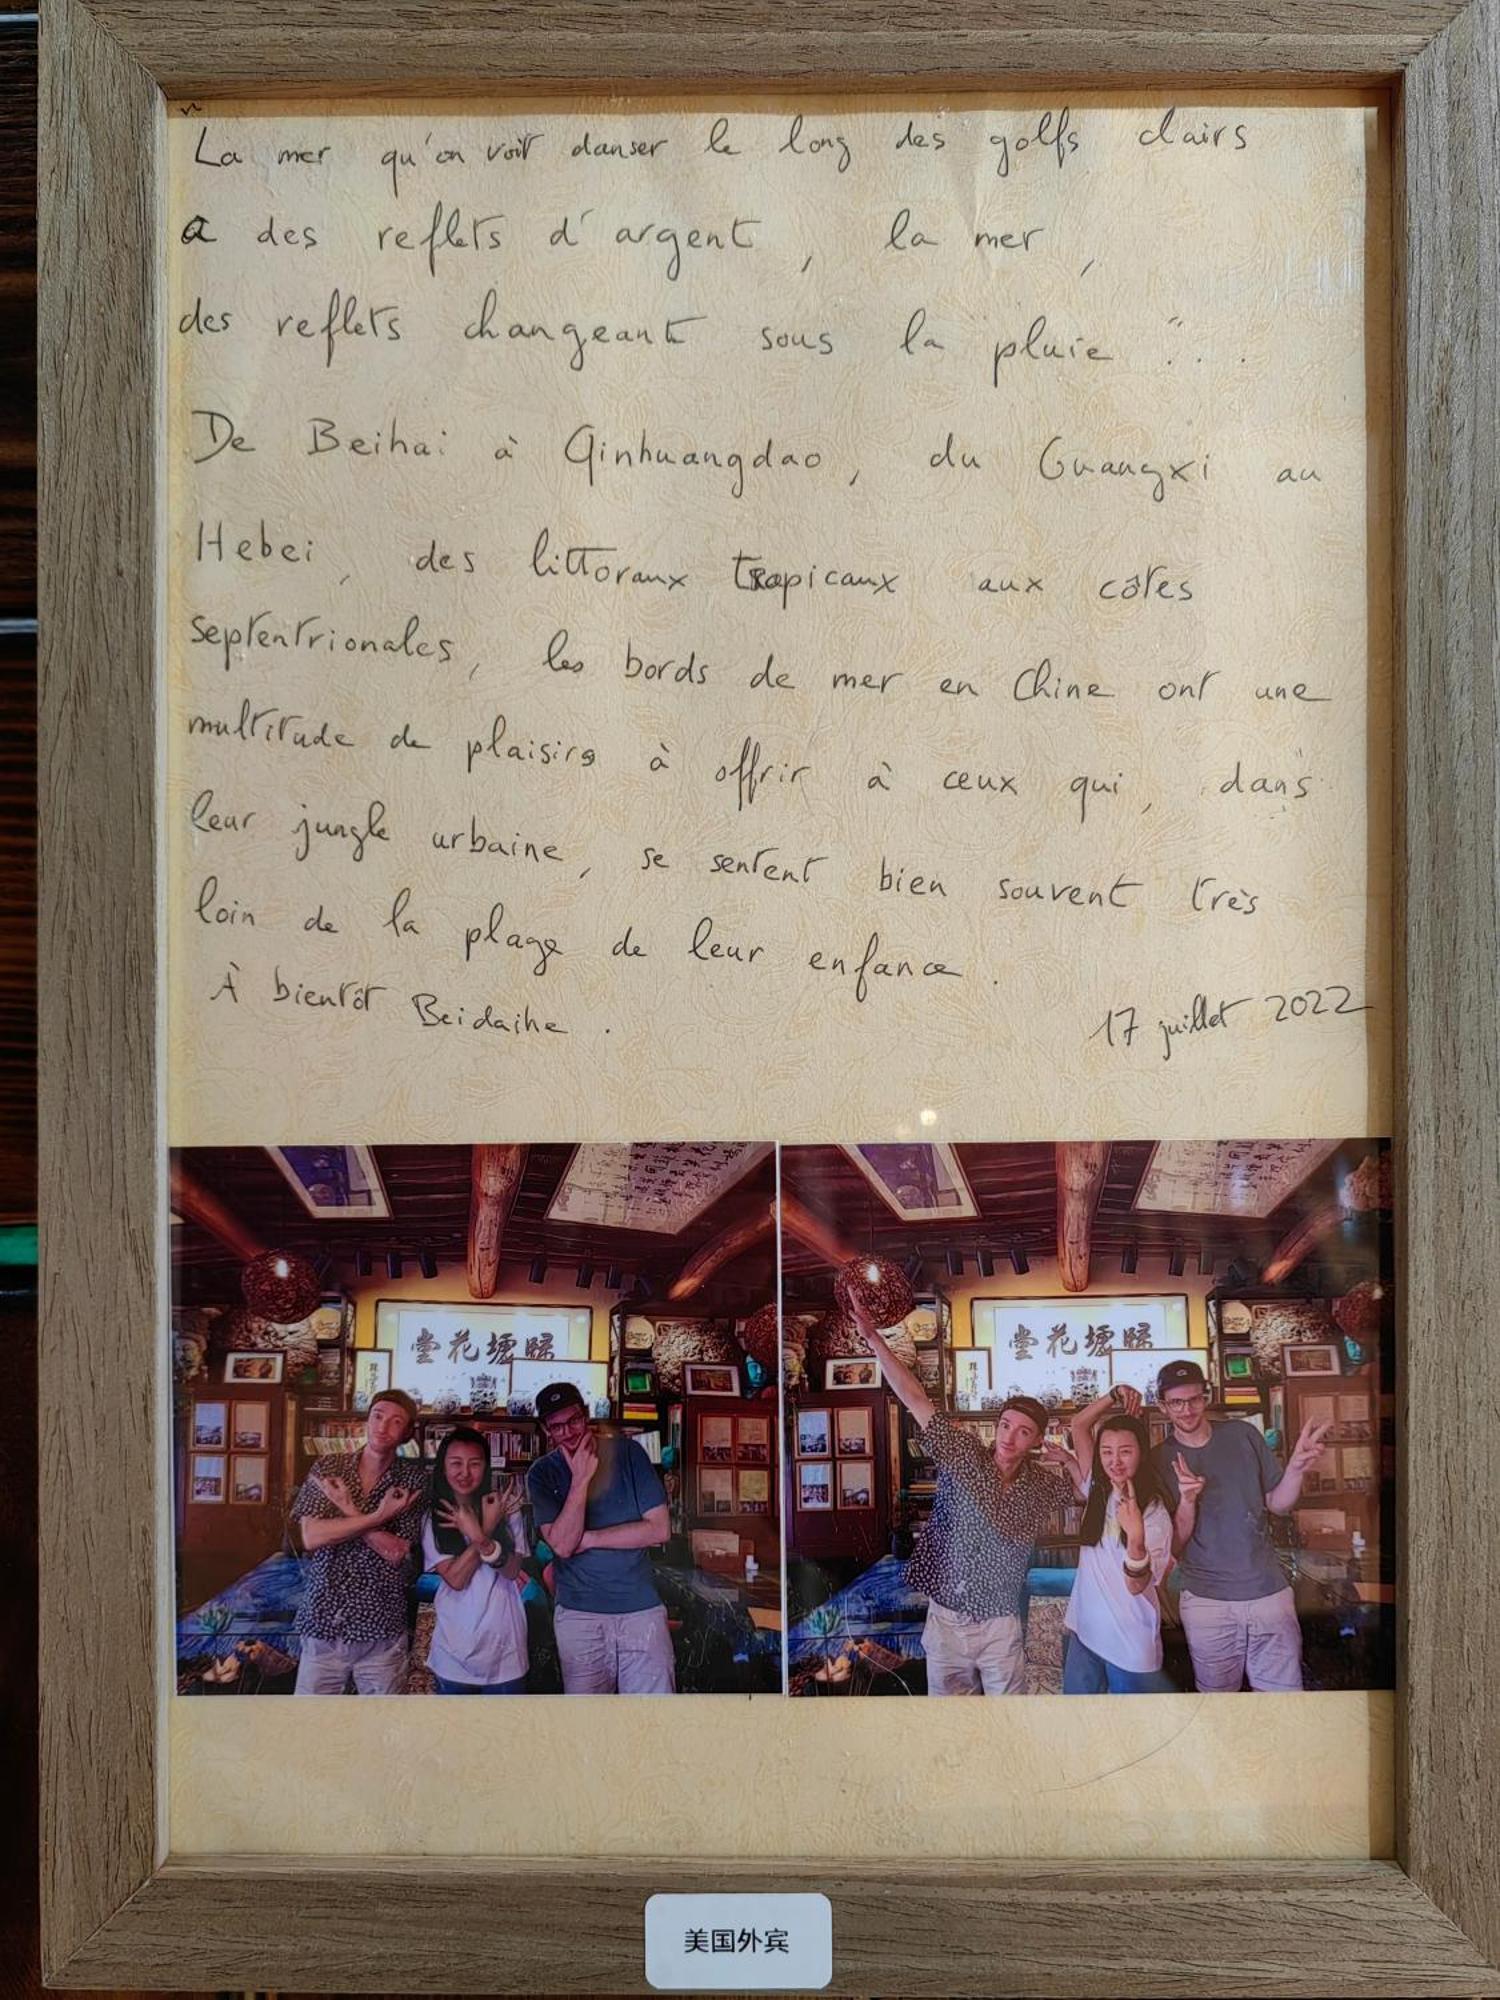 "La mer qu'on voit danser le long des golfs clairs
a des reflets d'argent, la mer,
des reflets changeant sous la pluie"...
De Beihai à Qinhuangdao, du Guangxi au
Hebei, des littoraux tropicaux aux côtes
septentrionales, les bords de mer en Chine ont une
multitude de plaisirs à offrir à ceux qui, dans
leur jungle urbaine, se sentent bien souvent très
loin de la plage de leur enfance.
À bientôt Beidaihe.
17 juillet 2022
堂花塘歸
堂花塘歸
美国外宾